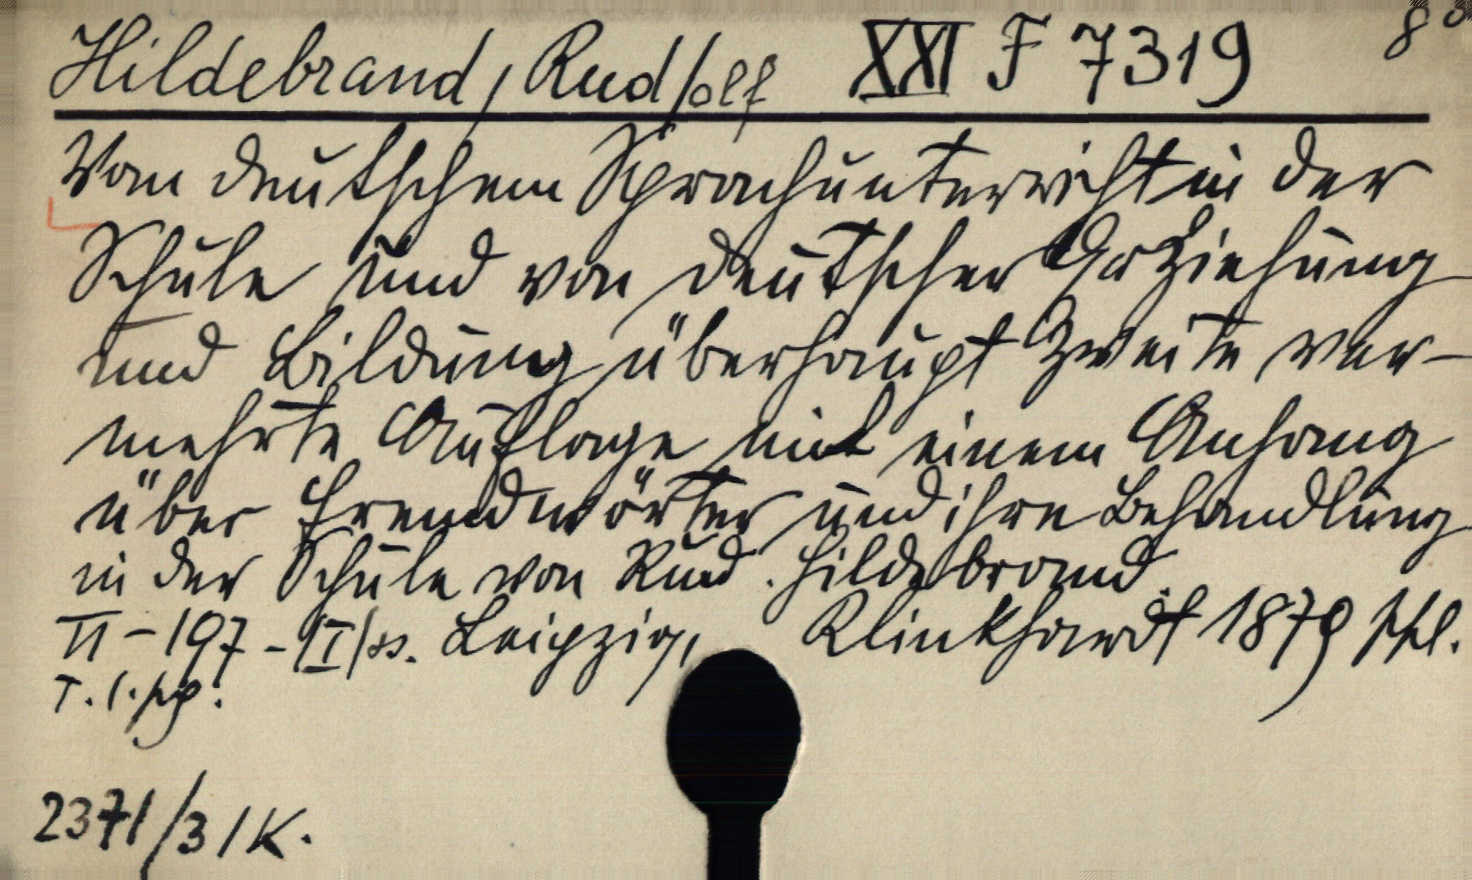 Hildebrand, Rud/olf XXI F 7319 8°
Vom deutschem Sprachunterricht in der
Schule und von deutscher Erziehung
und Bildung überhaupt Zweite ver-
mehrte Auflage mit einem Anhang
über Fremdwörter und ihre Behandlung
in der Schule von Rud. Hildebrand.
II-197- Leipzig, Klinkhardt 1879
2371/3/K.